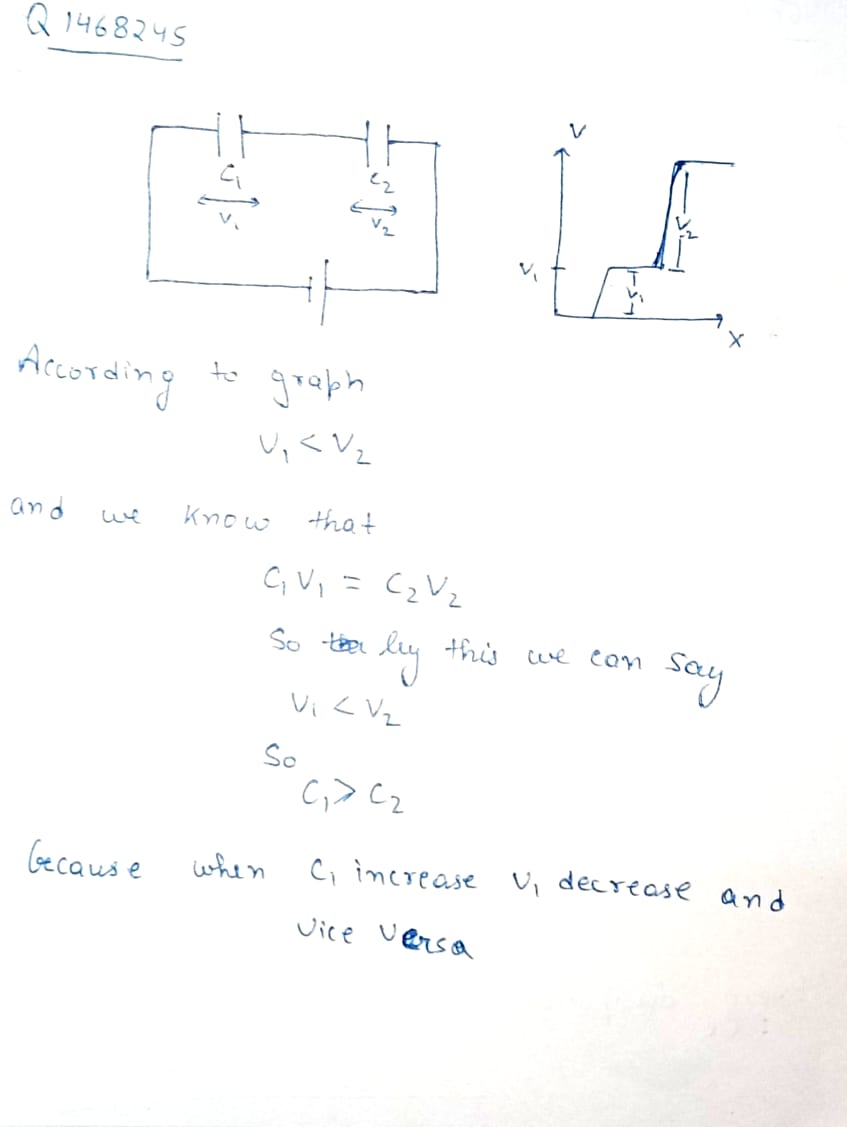 Q 1468245
C₁ C₂
V₁ V₂
V
V₂
V₁ V₁
X
According to graph
V₁ < V₂
and we know that
C₁V₁ = C₂V₂
So by this we can say
V₁ < V₂
So
C₁ > C₂
because when C₁ increase V₁ decrease and
vice versa